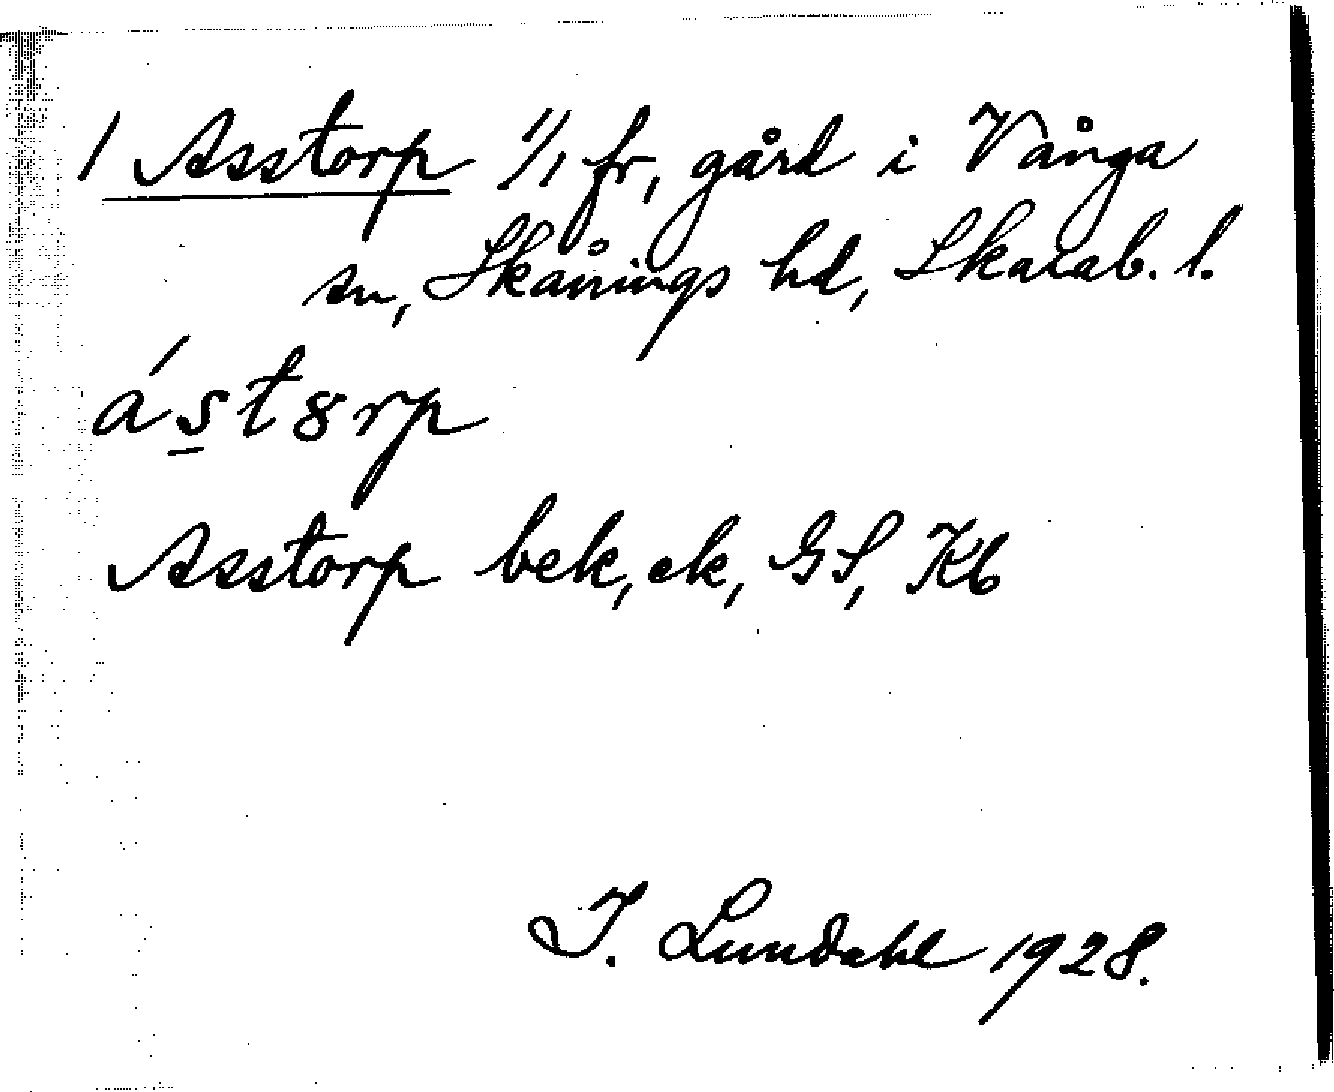 1 Asstorp 1/1 fr, gård i Vånga
sn, Skånings hd, Skarab. l.
ás̲t8rp
Asstorp bek, ek, GS, Kb
I. Lundahl 1928.